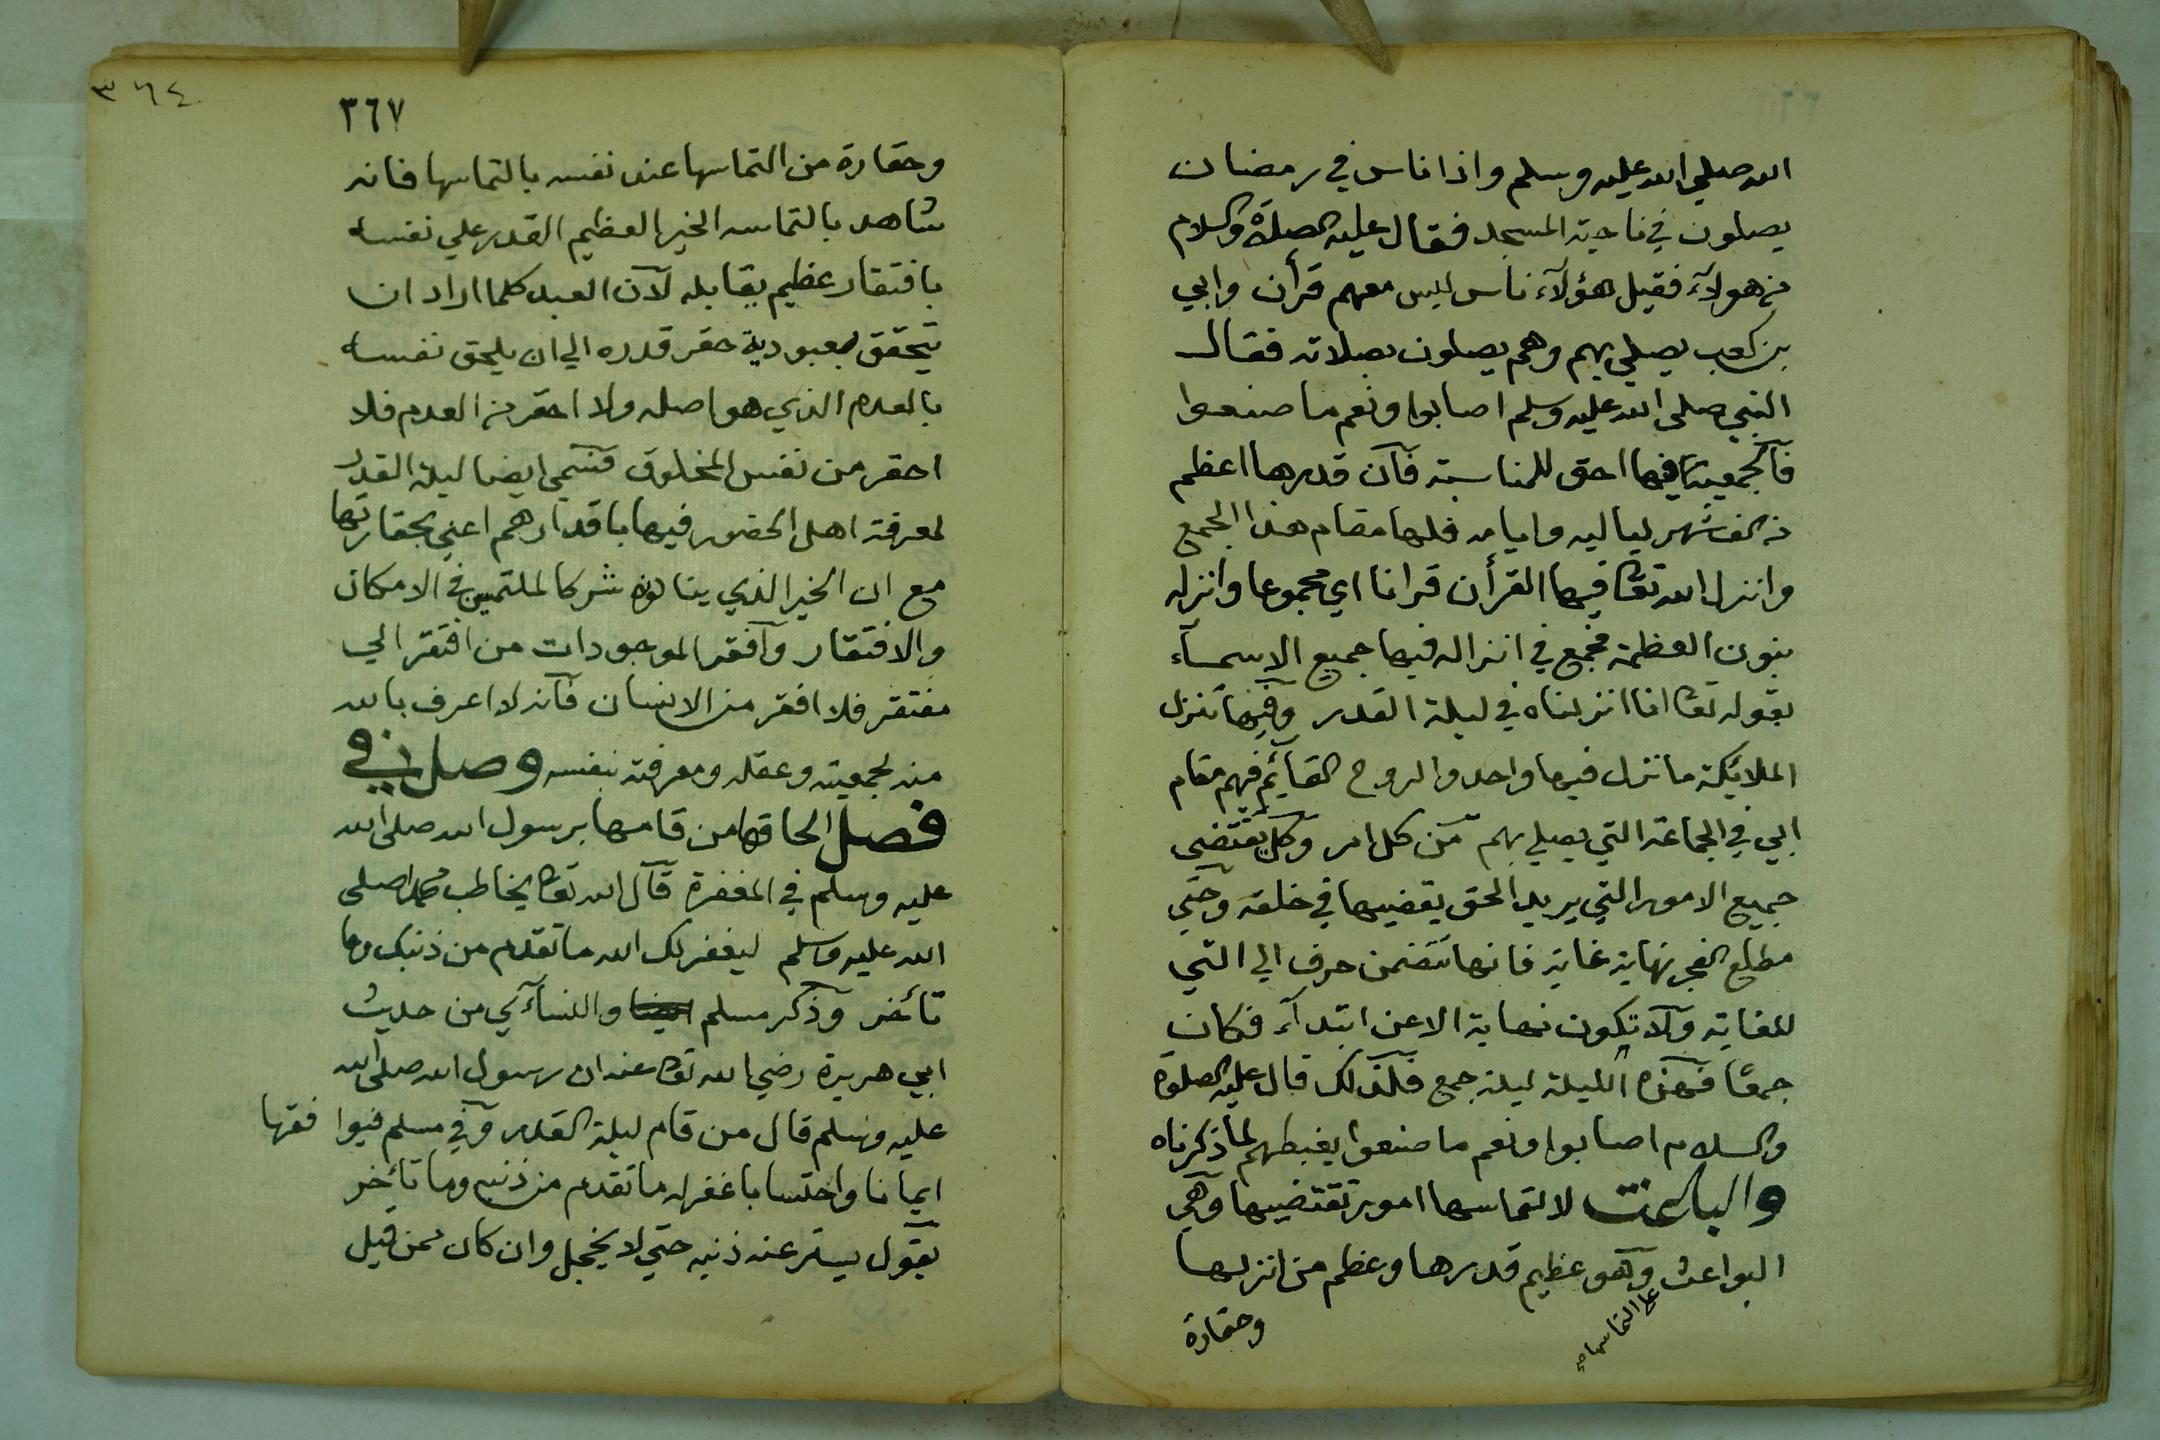 الله صلي الله عليه وسلم واذا ناس في رمضان
يصلون في ناحية المسجد فقال عليه الصلاة والسلام
من هولآء فقيل هؤلآء ناس ليس معهم قرأن وابي
بن كعب يصلي بهم وهم يصلون بصلاته فقال
النبي صلى الله عليه وسلم اصابوا ونعم ما صنعوا
فالجمعية فيها احق للمناسبة فآن قدرها اعظم
من الف شهر لياليه وايامه فلها مقام هذا الجمع
وانزل الله تعا فيها القرأن قرانا اي مجموعا وانزله
بنون العظمة فجمع في انزاله فيها جميع الاسمآء
بقوله تعا انا انزلناه في ليلة القدر وفيها تنزل
الملايكة ما نزل فيها واحد والروح القايم فيهم مقام
ابي في الجماعة التي يصلي بهم من كل امر وكل يقتضي
جميع الامور التي يريد الحق يقضيها في خلقه وحتي
مطلع الفجر نهاية غاية فانها تتضمن حرف الي التي
للغاية ولا تكون نهاية الا عن ابتدآء فكان
جمعا فهذه الليلة ليلة جمع فلذلك قال عليه الصلوة
والسلام اصابوا ونعم ما صنعوا يغبطهم لما ذكرناه
والباعث لالتماسها امور تقتضيها وهي
البواعث وهو عظيم قدرها وعظم من انزلها
علي التماسها صح
وحقارة
٣٦٤
٣٦٧
وحقارة من التماسها عند نفسه بالتماسها فانه
شاهد بالتماسه الخير العظيم القدر علي نفسه
بافتقار عظيم يقابله لآن العبد كلما اراد ان
يتحقق بعبودية حقر قدره الي ان يلحق نفسه
بالعدم الذي هو اصله ولا احقر من العدم فلا
احقر من نفس المخلوق فتسمي ايضا ليلة القدر
لمعرفة اهل الحضور فيها باقدارهم اعني بحقارتها
مع ان الخير الذي ينالونه شركا لملتمس في الامكان
والافتقار وآفقر الموجودات من افتقر الي
مفتقر فلا افقر من الانسان فآنه لا اعرف بالله
منه لجمعيته وعقله ومعرفته بنفسه وصل في
فصل الحاقها من قامها برسول الله صلى الله
عليه وسلم في المغفرة قآل الله تعا يخاطب محمدا صلى
الله عليه وسلم ليغفر لك الله ما تقدم من ذنبك وما
تأخر وذكر مسلم والنسآئي من حديث
ابي هريرة رضي الله تعا عنه ان رسول الله صلى الله
عليه وسلم قال من قام ليلة القدر وفي مسلم فيوافقها
ايمانا واحتسابا غفر له ما تقدم من ذنبه وما تأخر
يقول يستر عنه ذنبه حتي لا يخجل وان كان ممن قيل